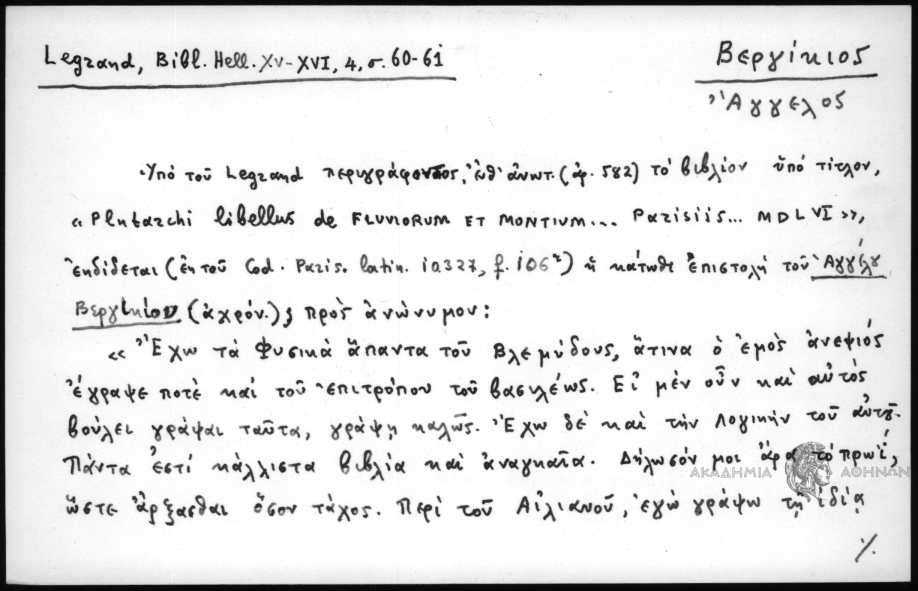 Legrand, Bibl. Hell. XV-XVI, 4, σ. 60-61
Βεργίκιος
Ἄγγελος
Ὑπὸ τοῦ Legrand περιγράφοντος, ἔνθ' ἀνωτ. (ἀρ. 582) τὸ βιβλίον ὑπὸ τίτλον,
« Plutarchi libellus de FLUVIORUM ET MONTIUM... Parisiis... MDLVI »,
ἐκδίδεται (ἐκ τοῦ Cod. Paris. latin. 10.327, f. 106ʳ) ἡ κάτωθι ἐπιστολὴ τοῦ Ἀγγέλου
Βεργικίου (ἀχρόν.), πρὸς ἀνώνυμον:
« Ἔχω τὰ Φυσικὰ ἅπαντα τοῦ Βλεμύδους, ἅτινα ὁ ἐμὸς ἀνεψιός
ἔγραψε ποτὲ καὶ τοῦ ἐπιτρόπου τοῦ βασιλέως. Εἰ μὲν οὖν καὶ αὐτὸς
βούλει γράψαι ταῦτα, γράψῃ καλῶς. Ἔχω δὲ καὶ τὴν Λογικὴν τοῦ αὐτοῦ.
Πάντα ἐστί κάλλιστα βιβλία καὶ ἀναγκαῖα. Δήλωσόν μοι ἄρα τὸ πρωΐ,
ὥστε ἄρξασθαι ὅσον τάχος. Περὶ τοῦ Αἰλιανοῦ, ἐγὼ γράψω τῇ ἰδίᾳ
./.
ΑΚΑΔΗΜΙΑ ΑΘΗΝΩΝ